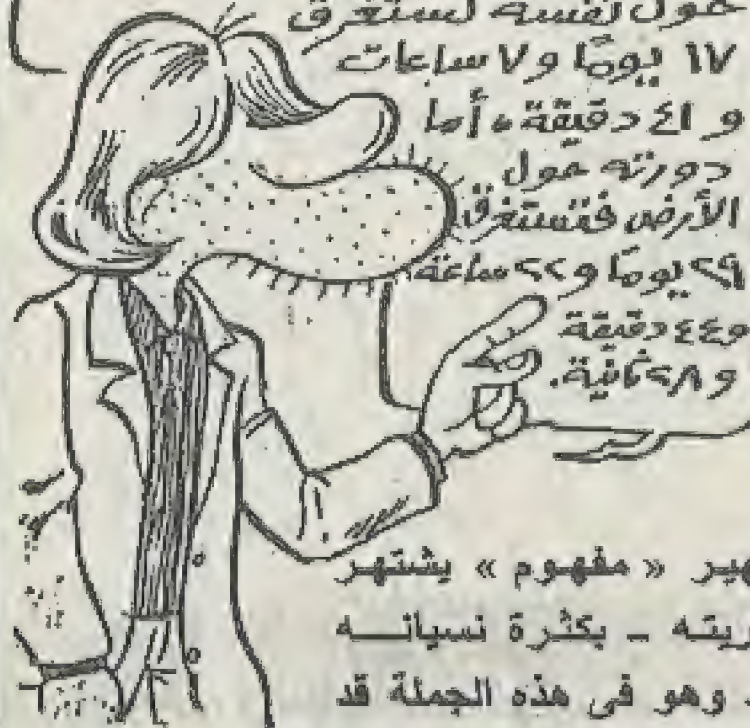 حول نفسه لستغرق
١٧ يومًا و ٧ ساعات
و ٤١ دقيقة، أما
دورته حول
الأرض فتستغرق
٢٩ يومًا و ٢٢ ساعة
و ٤٤ دقيقة
و ٢٨ ثانية.
هير « مفهوم » يشتهر
ريته ـ بكثرة نسيانه
وهو فى هذه الجملة قد